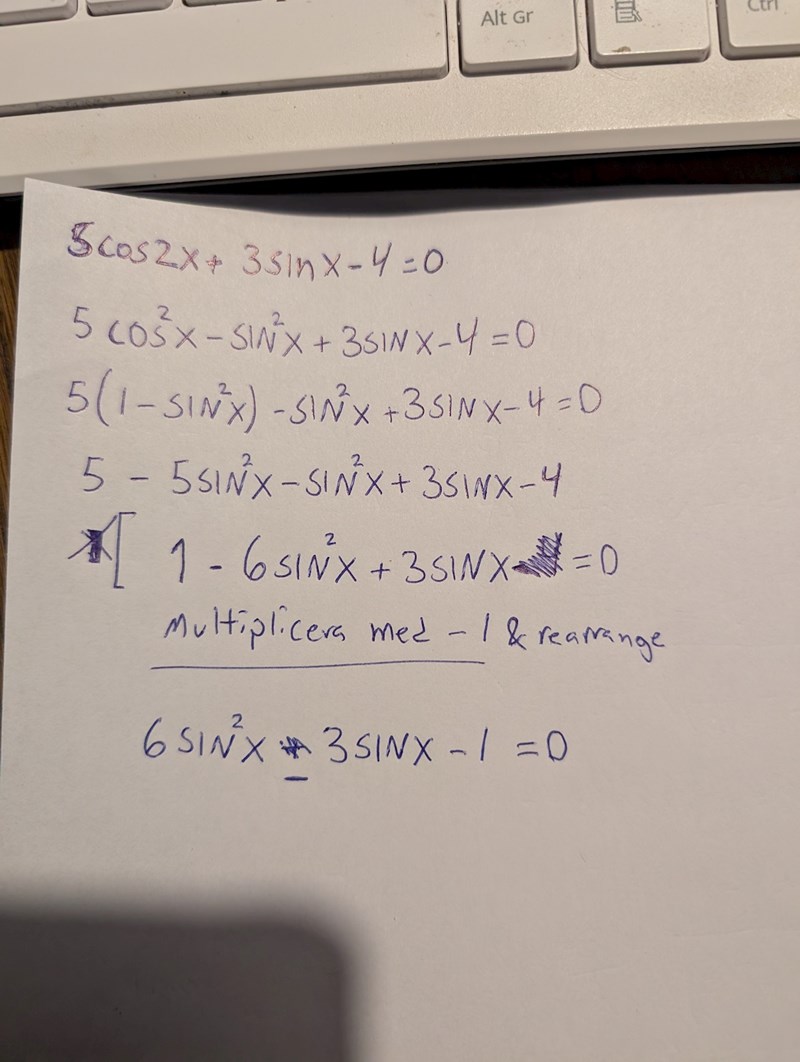 Alt Gr
Ctrl
5cos2x + 3sinx - 4 = 0
5 cos²x - sin²x + 3sinx - 4 = 0
5(1 - sin²x) - sin²x + 3sinx - 4 = 0
5 - 5sin²x - sin²x + 3sinx - 4
1 - 6sin²x + 3sinx = 0
Multiplicera med -1 & rearrange
6sin²x - 3sinx - 1 = 0